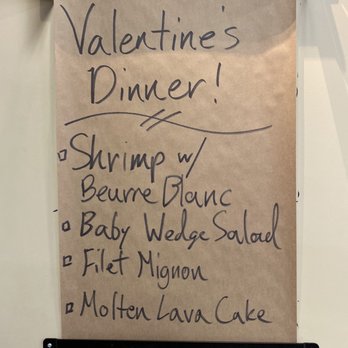 Valentine's
Dinner!
Shrimp w/
Beurre Blanc
Baby Wedge Salad
Filet Mignon
Molten Lava Cake